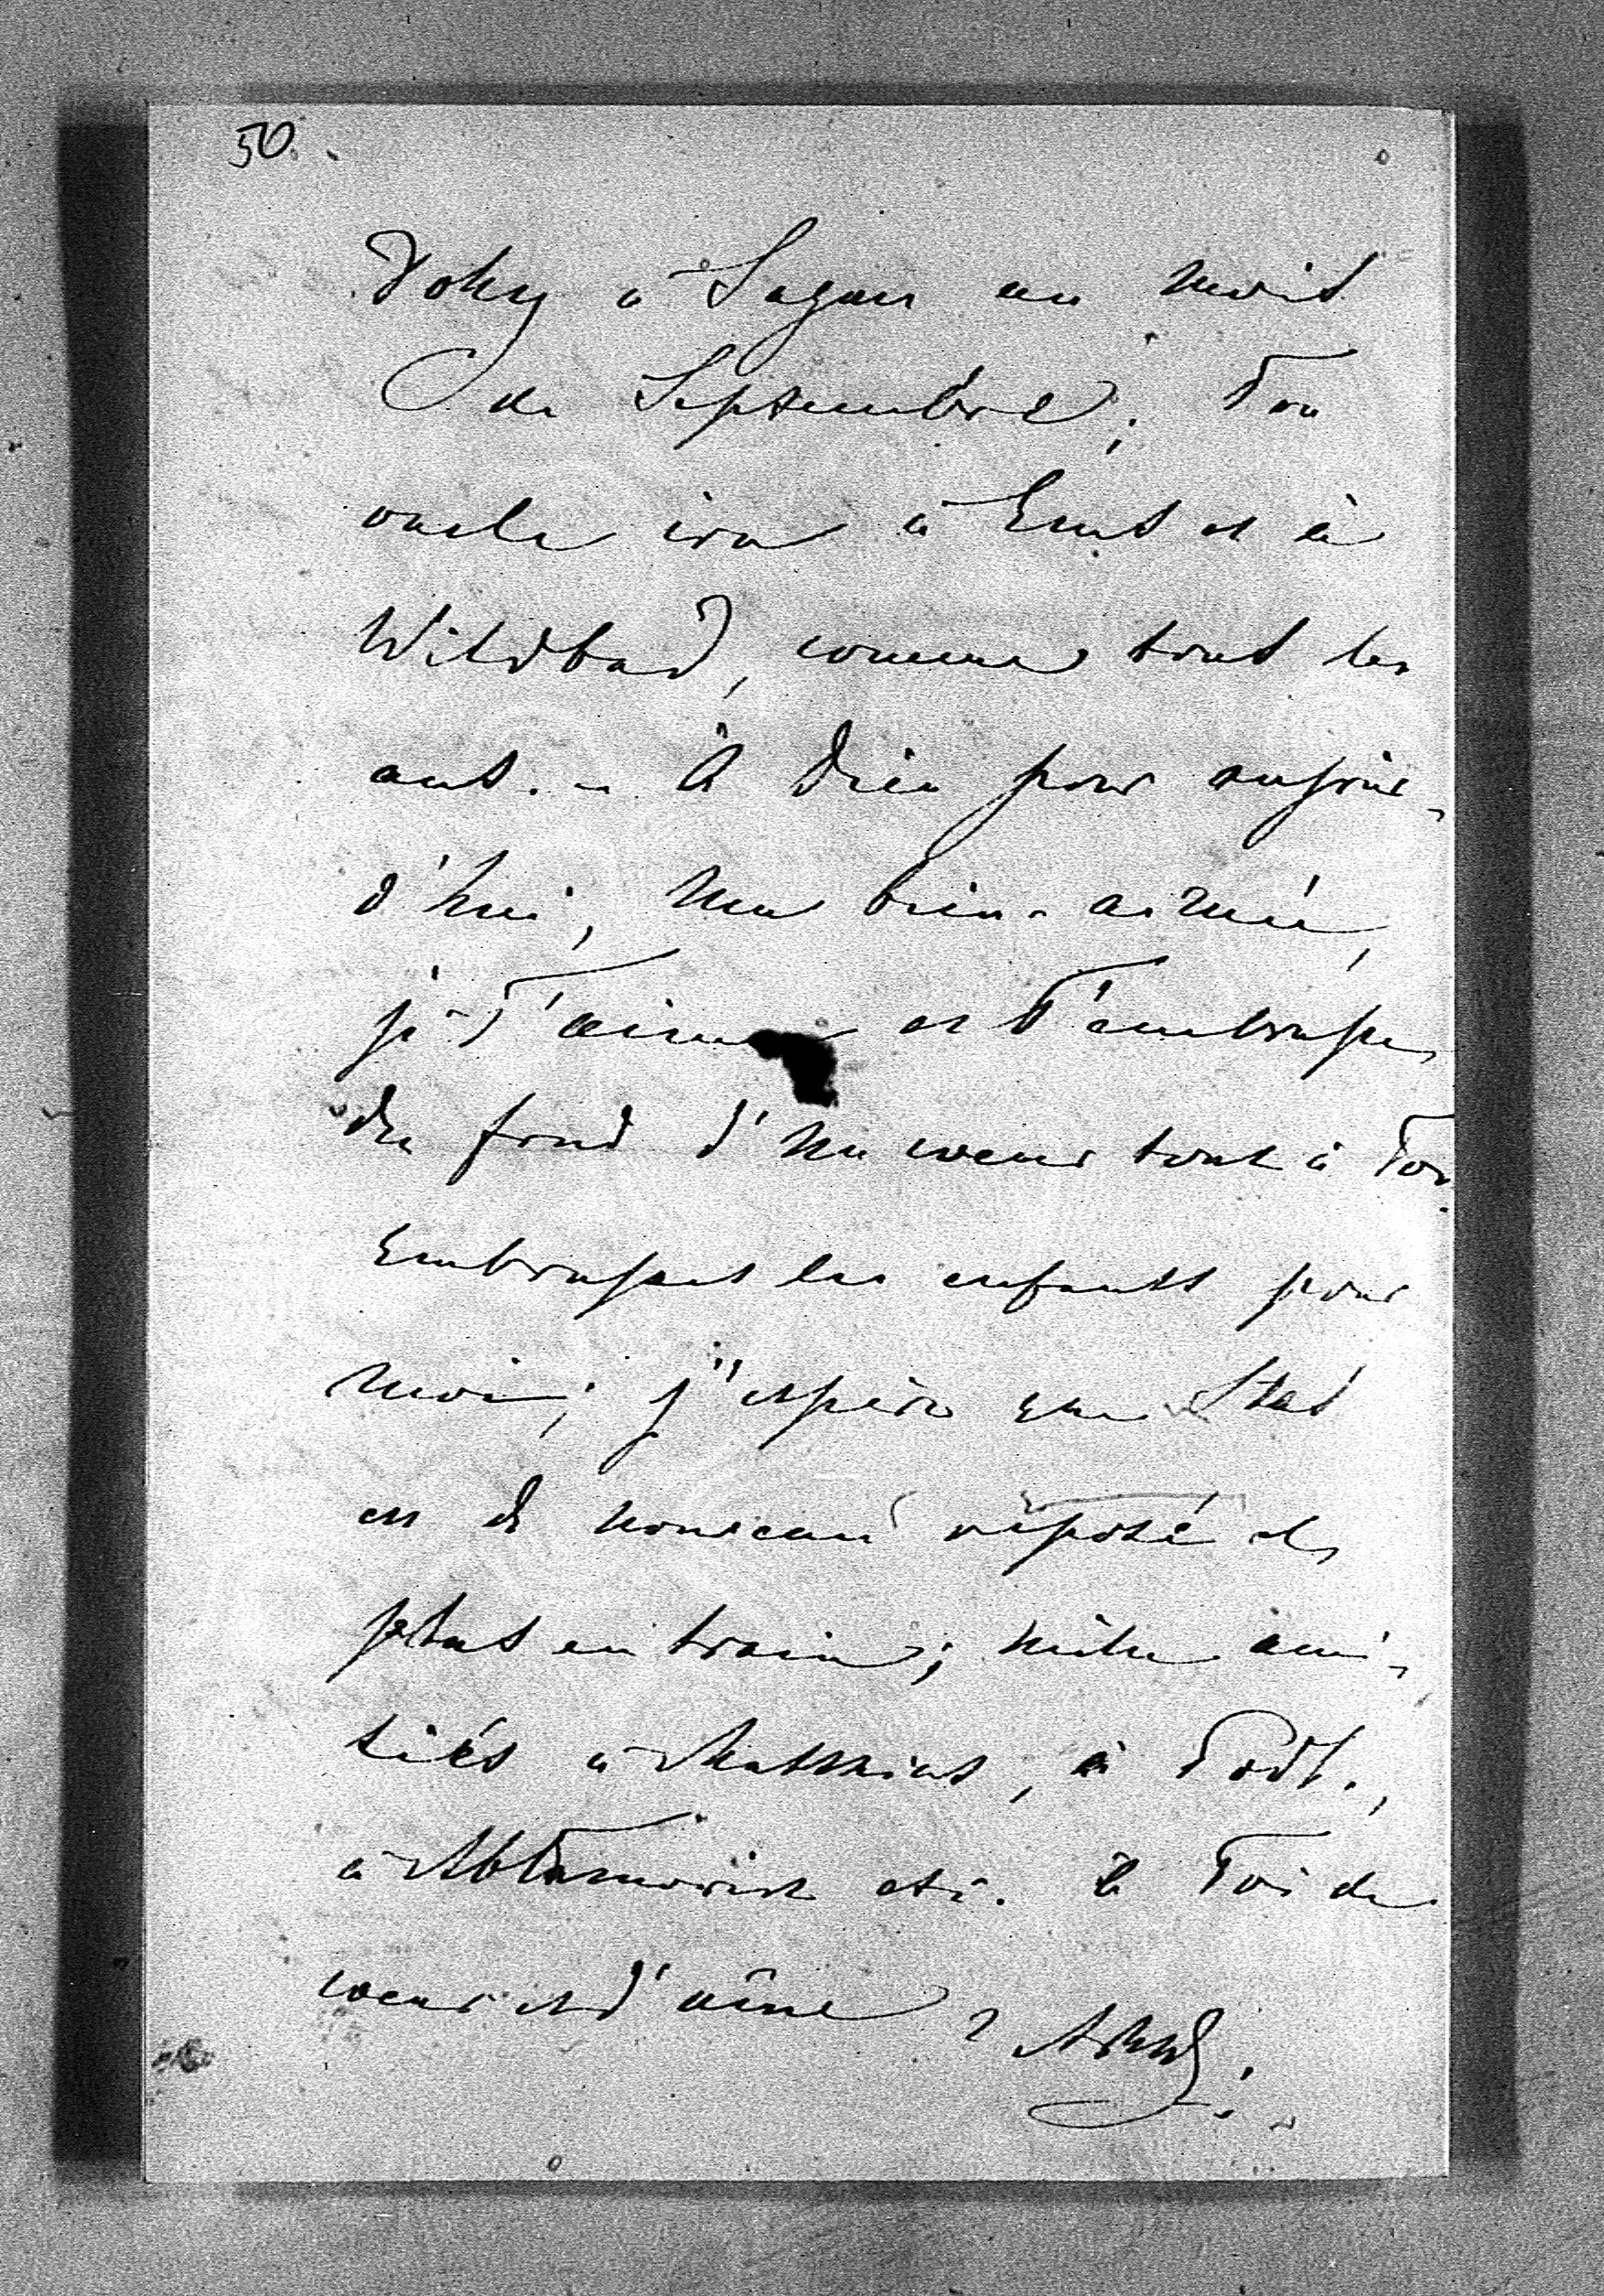 50.
à Sagan au mois
de Septembre; Ton
oncle ira à Ems et à
Wildbad, comme tous les
ans. – À Dieu pour aujour-
d'hui, ma bien-aimée,
je T'aime et T'embrasse
du fond d'un coeur tout à Toi.
Embrasses les enfants pour
moi; j'espère que Stas
est de nouveau reposé et
plus en train; mille ami-
tiés à Mathias, à
à etc. à Toi de
coeur et d'âme